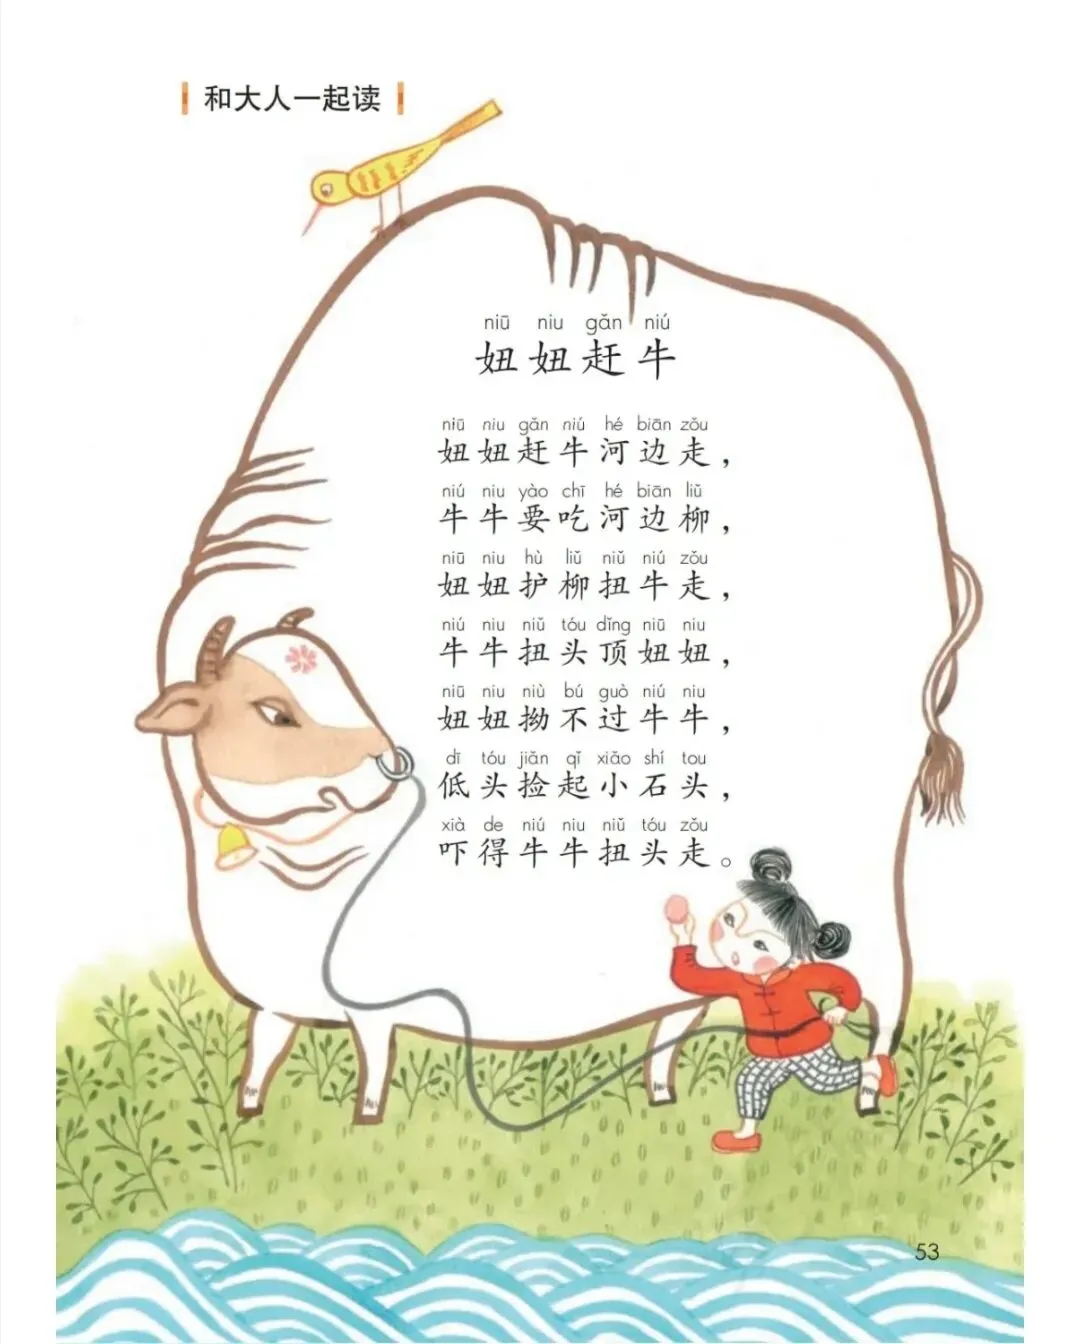 和大人一起读
niū niu gǎn niú
妞妞赶牛
niū niu gǎn niú hé biān zǒu
妞妞赶牛河边走，
niú niu yào chī hé biān liǔ
牛牛要吃河边柳，
niū niu hù liǔ niǔ niú zǒu
妞妞护柳扭牛走，
niú niu niǔ tóu dǐng niū niu
牛牛扭头顶妞妞，
niū niu niù bú guò niú niu
妞妞拗不过牛牛，
dī tóu jiǎn qǐ xiǎo shí tou
低头捡起小石头，
xià de niú niu niǔ tóu zǒu
吓得牛牛扭头走。
53